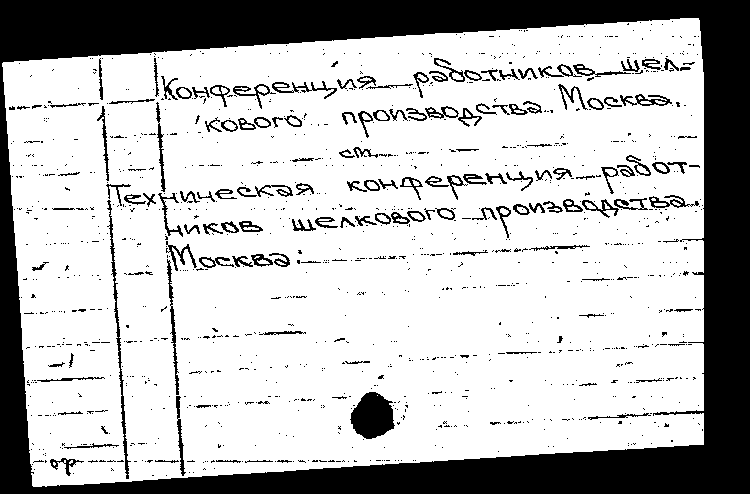 Конференция работников шел-
кового производства. Москва.
см.
Техническая конференция работ-
ников шелкового производства.
Москва.
ор